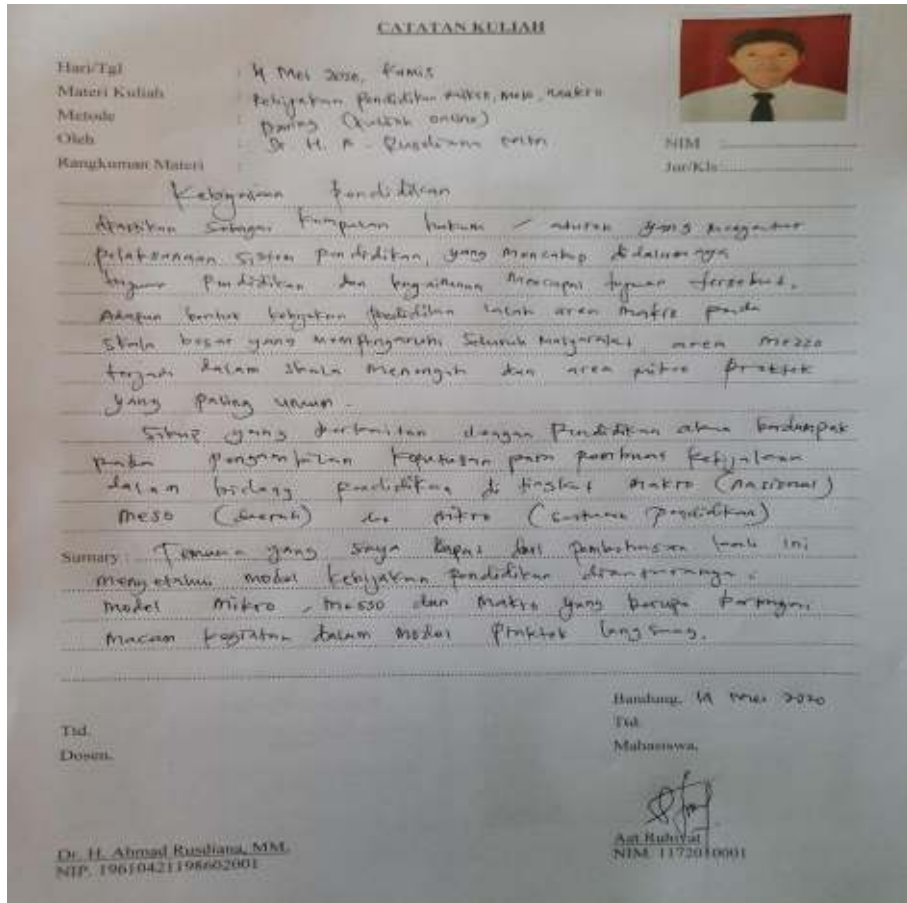 CATATAN KULIAH
Hari/Tgl : 14 Mei 2020, Kamis
Materi Kuliah : Kebijakan Pendidikan mikro, meso, makro
Metode : Daring (kuliah online)
Oleh : Dr H. A. Rusdiana
Rangkuman Materi :
NIM
Jur/Kls
Kebijakan Pendidikan
diartikan sebagai kumpulan hukum / aturan yang mengatur
pelaksanaan sistem pendidikan, yang mencakup didalamnya
tujuan Pendidikan dan bagaimana mencapai tujuan tersebut.
Adapun bentuk kebijakan pendidikan ialah area makro pada
skala besar yang mempengaruhi seluruh masyarakat, area mezzo
terjadi dalam skala menengah dan area mikro Praktek
yang paling umum.
yang berkaitan dengan Pendidikan akan berdampak
pada pengambilan keputusan para pembuat kebijakan
dalam bidang pendidikan di tingkat makro (nasional)
meso (daerah) mikro (satuan Pendidikan)
Sumary : Temuan yang saya dapat dari pembahasan ini
mengetahui model kebijakan pendidikan diantaranya :
model mikro, messo dan makro yang berupa
macam kegiatan dalam model Praktek langsung.
Bandung, 14 Mei 2020
Ttd.
Ttd.
Mahasiswa,
Dosen,
Dr. H. Ahmad Rusdiana, MM.
NIP. 19610421198602001
Aat Ruhiyat
NIM. 1172010001